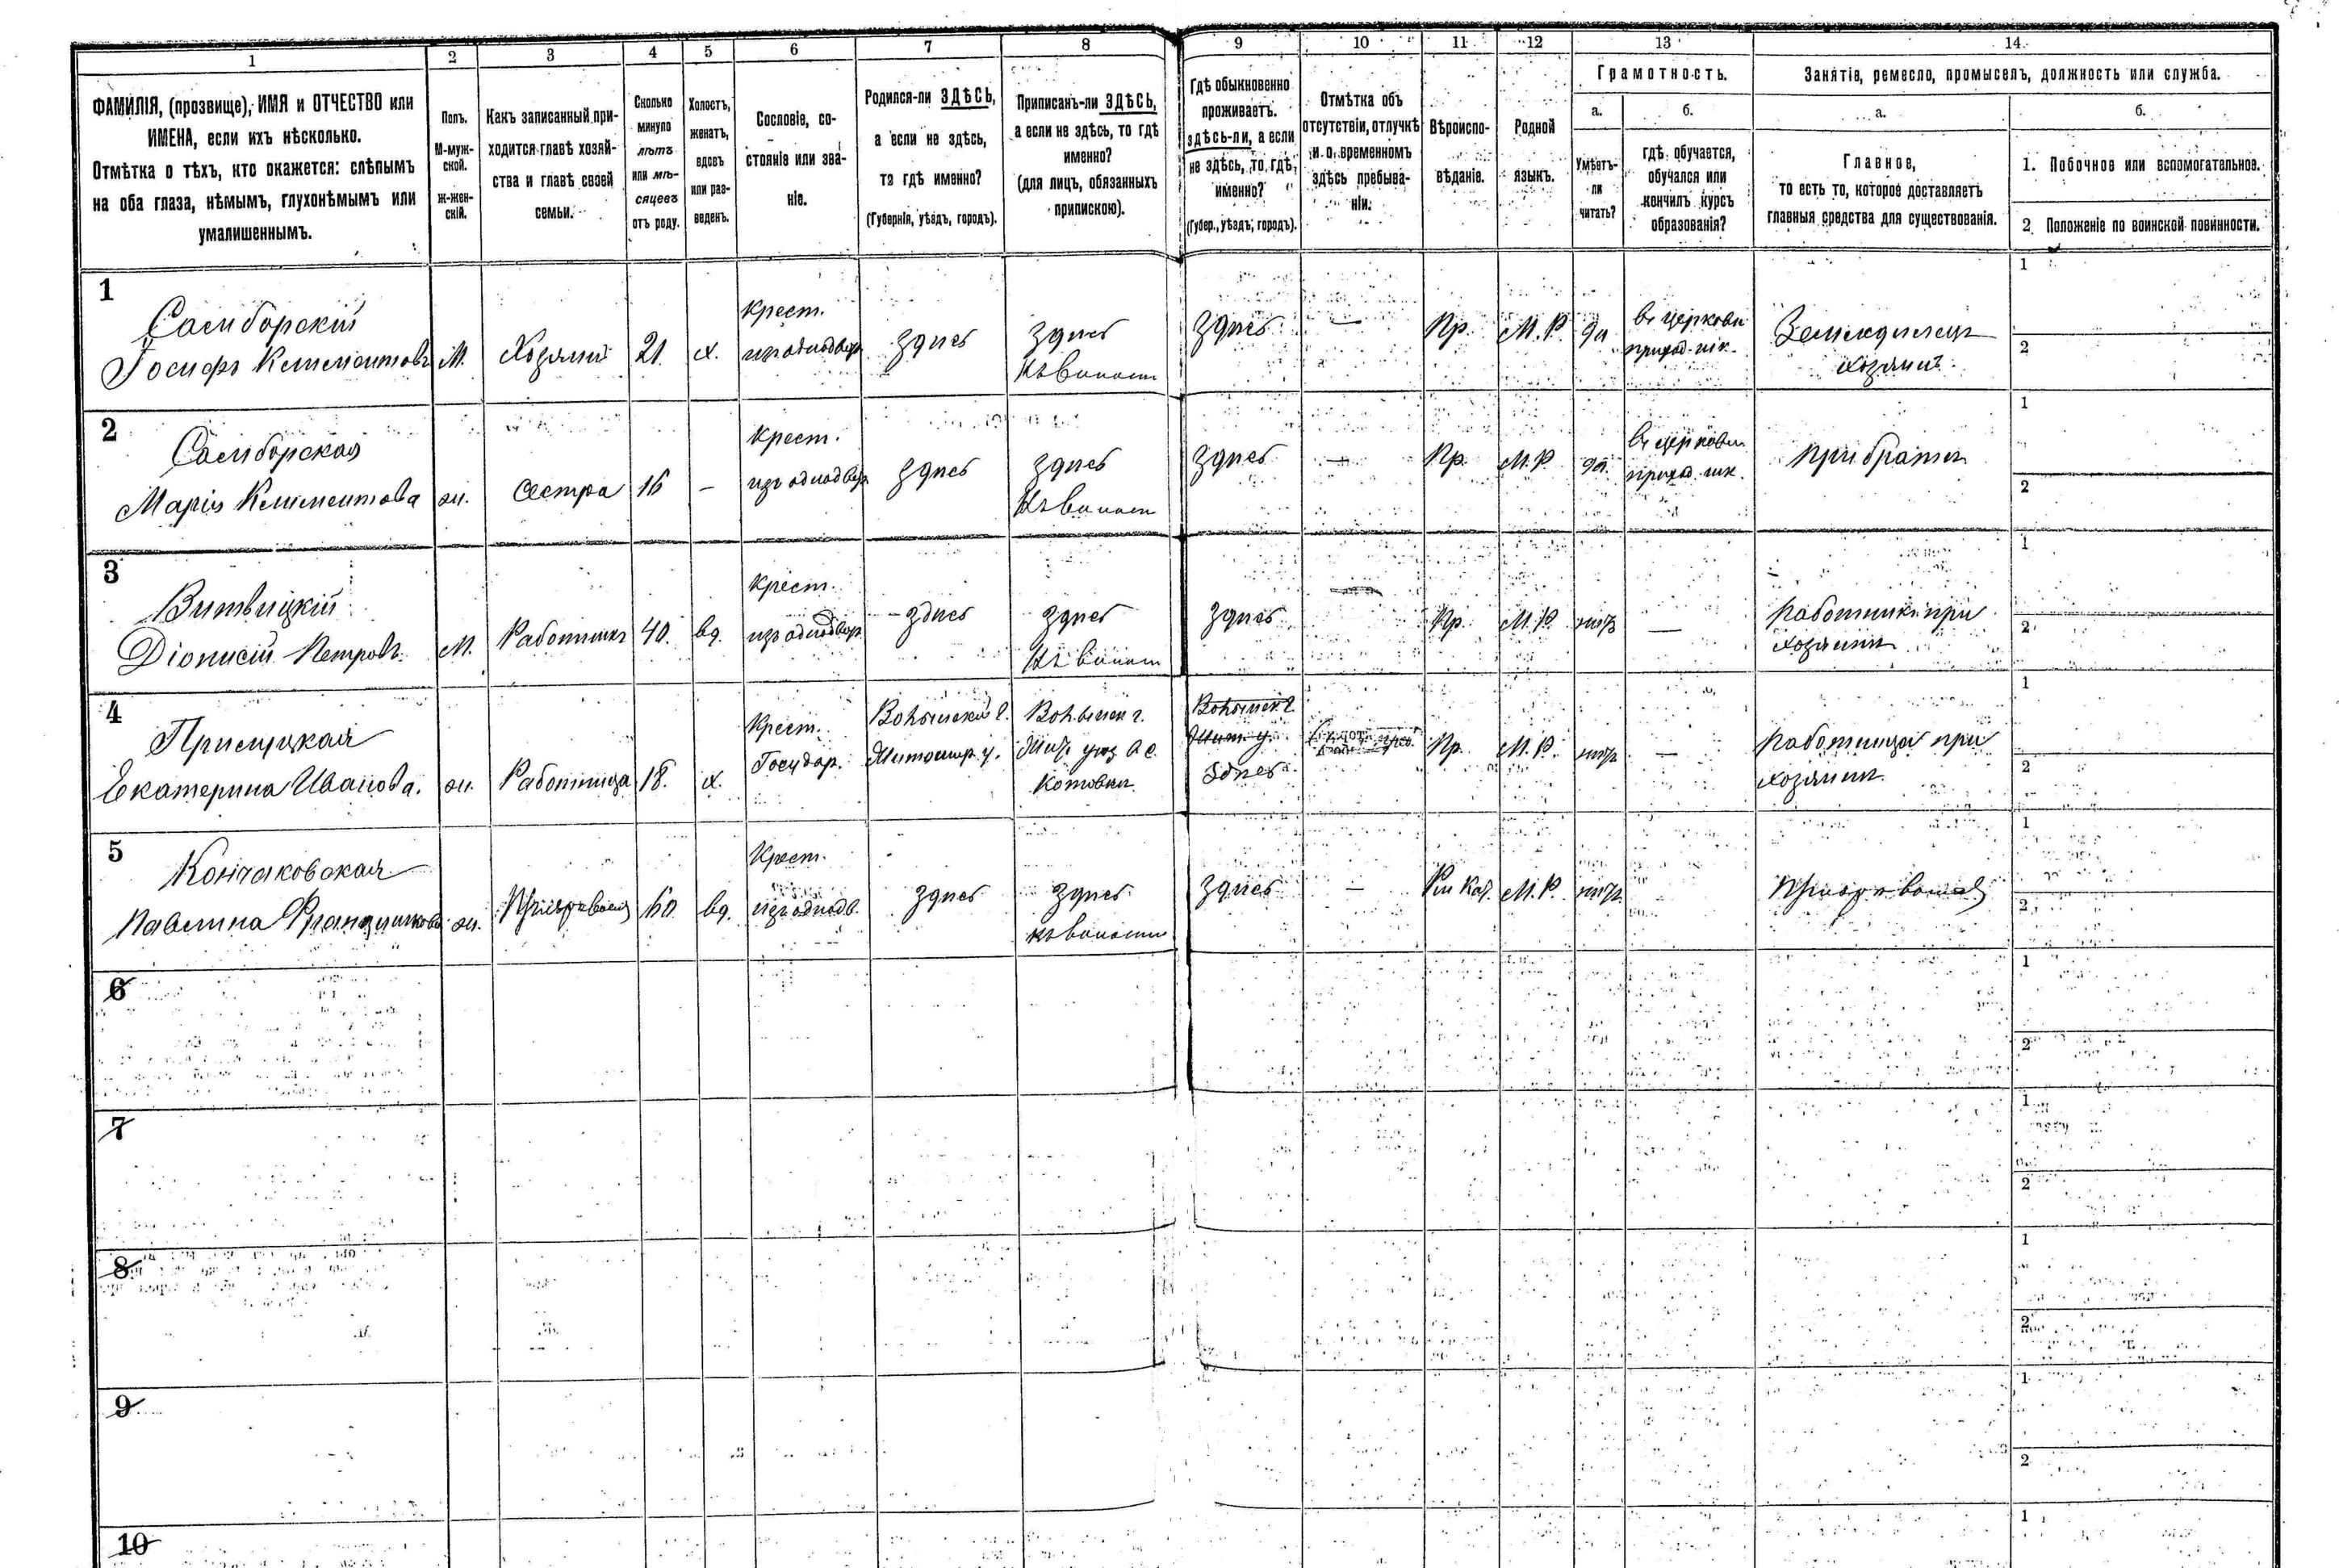 1 2 3 4 5 6 7 8 9 10 11 12 13 14
ФАМИЛІЯ, (прозвище), ИМЯ и ОТЧЕСТВО или
ИМЕНА, если ихъ нѣсколько.
Отмѣтка о тѣхъ, кто окажется: слѣпымъ
на оба глаза, нѣмымъ, глухонѣмымъ или
умалишеннымъ.
Полъ.
М-муж-
ской.
ж-жен-
скій.
Какъ записанный при-
ходится главѣ хозяй-
ства и главѣ своей
семьи.
Сколько
минуло
лѣтъ
или мѣ-
сяцевъ
отъ роду.
Холостъ,
женатъ,
вдовъ
или раз-
веденъ.
Сословіе, со-
стояніе или зва-
ніе.
Родился-ли ЗДѢСЬ,
а если не здѣсь,
то гдѣ именно?
(Губернія, уѣздъ, городъ).
Приписанъ-ли ЗДѢСЬ,
а если не здѣсь, то гдѣ
именно?
(для лицъ, обязанныхъ
припискою).
Гдѣ обыкновенно
проживаетъ.
здѣсь-ли, а если
не здѣсь, то гдѣ
именно?
(Губер., уѣздъ, городъ).
Отмѣтка объ
отсутствіи, отлучкѣ
и о временномъ
здѣсь пребыва-
ніи.
Вѣроиспо-
вѣданіе.
Родной
языкъ.
Грамотность.
а.
Умѣетъ-
ли
читать?
б.
гдѣ обучается,
обучался или
кончилъ курсъ
образованія?
Занятіе, ремесло, промыселъ, должность или служба.
а.
Главное,
то есть то, которое доставляетъ
главныя средства для существованія.
б.
1. Побочное или вспомогательное.
2. Положеніе по воинской повинности.
1
Самборскій
Іосифъ Климентовъ
М.
Хозяинъ
21
х.
крест.
изъ однодвор
здѣсь
здѣсь
Къ волости
здѣсь
—
Пр.
М. Р.
да
въ церковн
приход. шк.
Земледѣлецъ
хозяинъ.
1
2
2
Самборская
Марія Климентова
ж.
Сестра
16
—
крест.
изъ однодвор
здѣсь
здѣсь
Къ волост
здѣсь
—
Пр.
М. Р.
да.
въ церковн
приход. шк.
при братѣ
1
2
3
Витвицкій
Діонисій Петровъ.
М.
Работникъ
40.
вд.
крест.
изъ однодвор.
здѣсь
здѣсь
Къ волост
здѣсь
—
Пр.
М. Р.
нѣтъ
—
Работникъ при
хозяинѣ
1
2
4
Екатерина Иванова.
ж.
Работница
18.
х.
Крест.
Государ.
Волынской г.
Житомир. у.
Волынск г.
Жит. уѣз
Котовки
Волынск. г.
Жит. у.
Здѣсь
Пр.
М. Р.
нѣтъ
—
Работница при
хозяинѣ.
1
2
5
Кончаковская
Павлина Францишкова
ж.
60.
вд.
Крест.
изъ однодв.
здѣсь
здѣсь
къ волости
здѣсь
—
Рим Кат.
М. Р.
нѣтъ
1
2
6
1
2
7
1
2
8
1
2
9
1
2
10
1